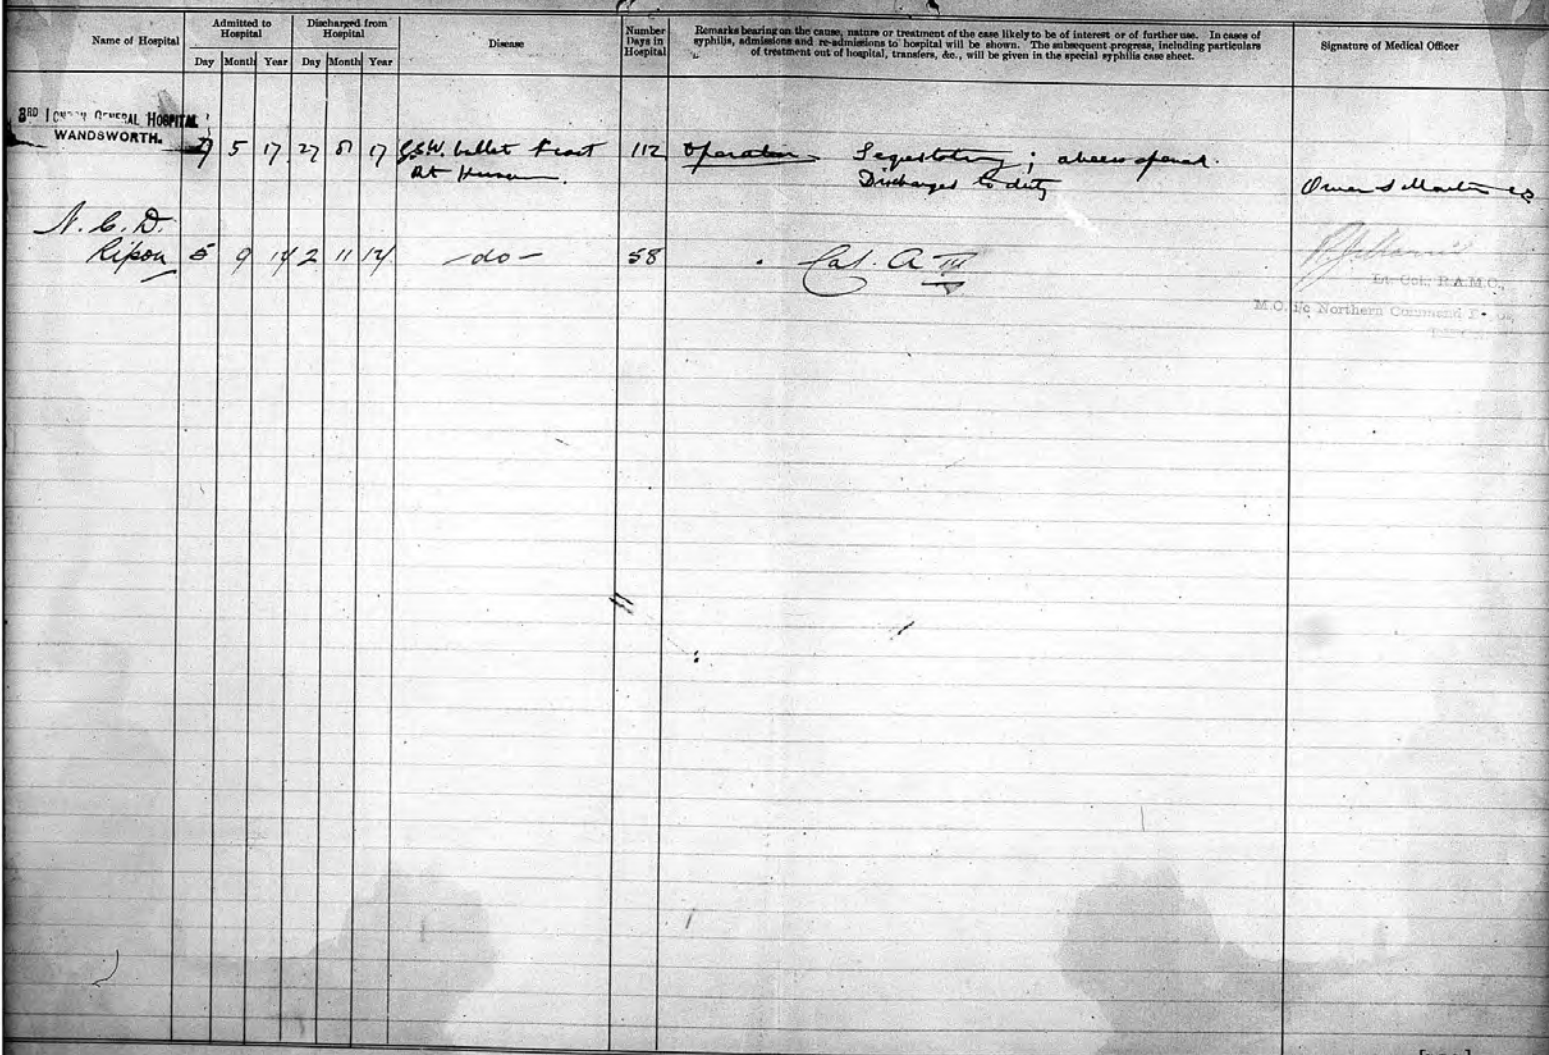 Name of Hospital
Admitted to Hospital
Day Month Year
Discharged from Hospital
Day Month Year
Disease
Number Days in Hospital
Remarks bearing on the cause, nature or treatment of the case likely to be of interest or of further use. In cases of
syphilis, admissions and re-admissions to hospital will be shown. The subsequent progress, including particulars
of treatment out of hospital, transfers, &c., will be given in the special syphilis case sheet.
Signature of Medical Officer
3RD LONDON GENERAL HOSPITAL
WANDSWORTH.
7 5 17 27 8 17 G.S.W. bullet fract 112 Operation Sequestotomy; abscess opened.
Rt Humerus. Discharged to duty
Owen S Martin
N. C. D.
Ripon 5 9 17 2 11 17 -do- 58 Cat. A III
Lt. Col., R.A.M.C.,
M.O. i/c Northern Command